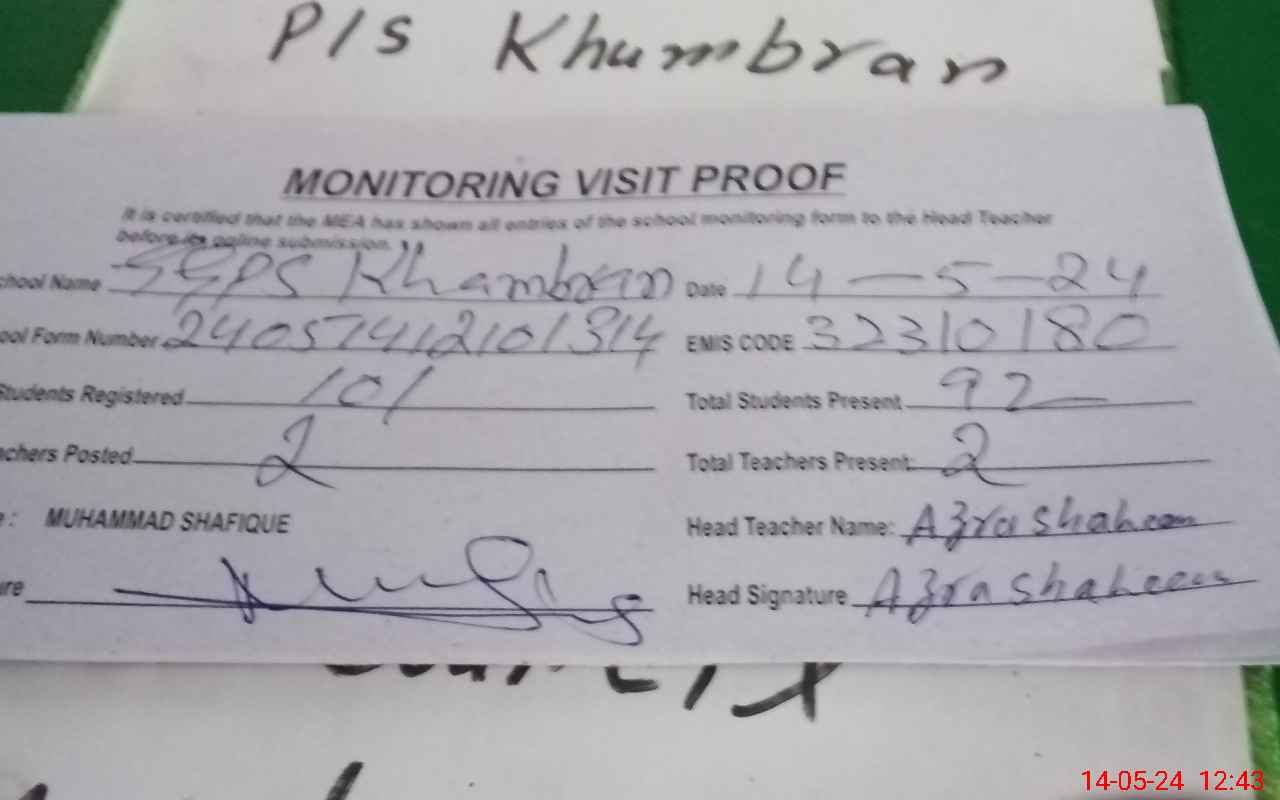 P/S Khumbran
MONITORING VISIT PROOF
It is certified that the MEA has shown all entries of the school monitoring form to the Head Teacher
before its online submission.
chool Name SGPS Khambran Date 14-5-24
ool Form Number 24057412101314 EMIS CODE 32310180
Students Registered 101 Total Students Present 92
achers Posted 2 Total Teachers Present: 2
e: MUHAMMAD SHAFIQUE Head Teacher Name: Azra Shaheen
ure Head Signature Azra Shaheen
14-05-24 12:43